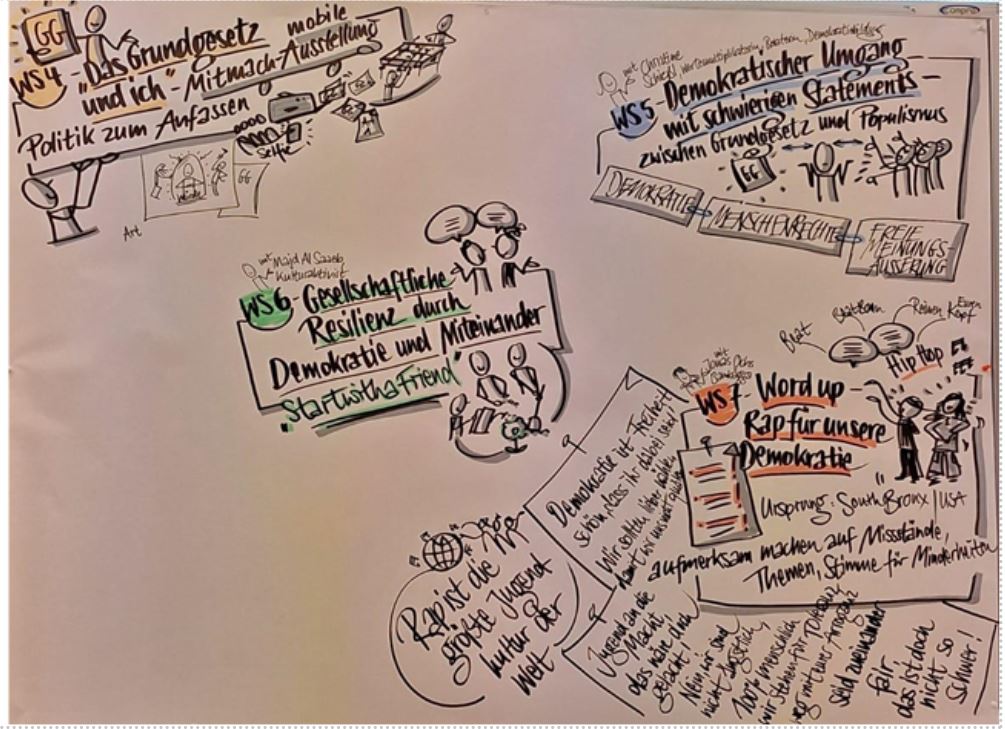 GG
WS4 - "Das Grundgesetz
und ich" - Mitmach-Ausstellung
mobile
Politik zum Anfassen
Selfie
GG
Art
mit Christine
Demokratischer Umgang
WS5 - mit schwierigen Statements -
zwischen Grundgesetz und Populismus
GG
DEMOKRATIE
MENSCHENRECHTE
FREIE
MEINUNGS
ÄUSSERUNG
mit Majd Al Saaeb
Kulturaktivist
WS6 - Gesellschaftliche
Resilienz durch
Demokratie und Miteinander
"Startwithafriend"
Beat
Reimen
Kopf
Hip Hop
mit
WS7 - Word up -
Rap für unsere
Demokratie
Ursprung: South Bronx | USA
aufmerksam machen auf Missstände,
Themen, Stimme für Minderheiten
Demokratie ist Freiheit
schön, dass ihr dabei seid!
Wir sollten
Rap ist die
größte Jugend
kultur der
Welt
Jugend an die
Macht
das wäre doch
gelacht!
Nein, wir sind
nicht
100% menschlich
wir stehen für Toleranz
weg mit eurer Arroganz
seid zueinander
fair
das ist doch
nicht so
schwer!